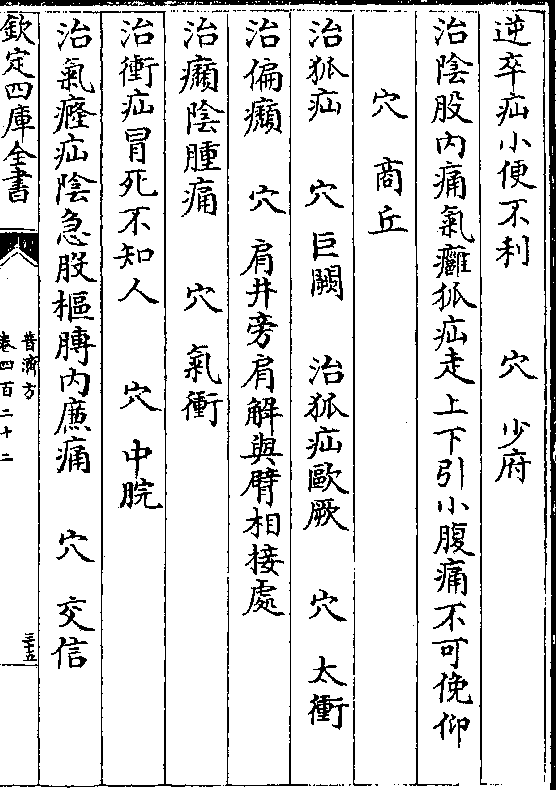 逆卒疝小便不利　穴　少府
治陰股内痛氣癰狐疝走上下引小腹痛不可俛仰
穴　商丘
治狐疝　穴　巨闕　治狐疝歐厥　穴　太衝
治偏癪　穴　肩井旁肩解與臂相接處
治癪陰腫痛　穴　氣衝
治衝疝冒死不知人　穴　中脘
治氣癃疝陰急股樞膞内廉痛　穴　交信
欽定四庫全書
普濟方
卷四百二十二
三五